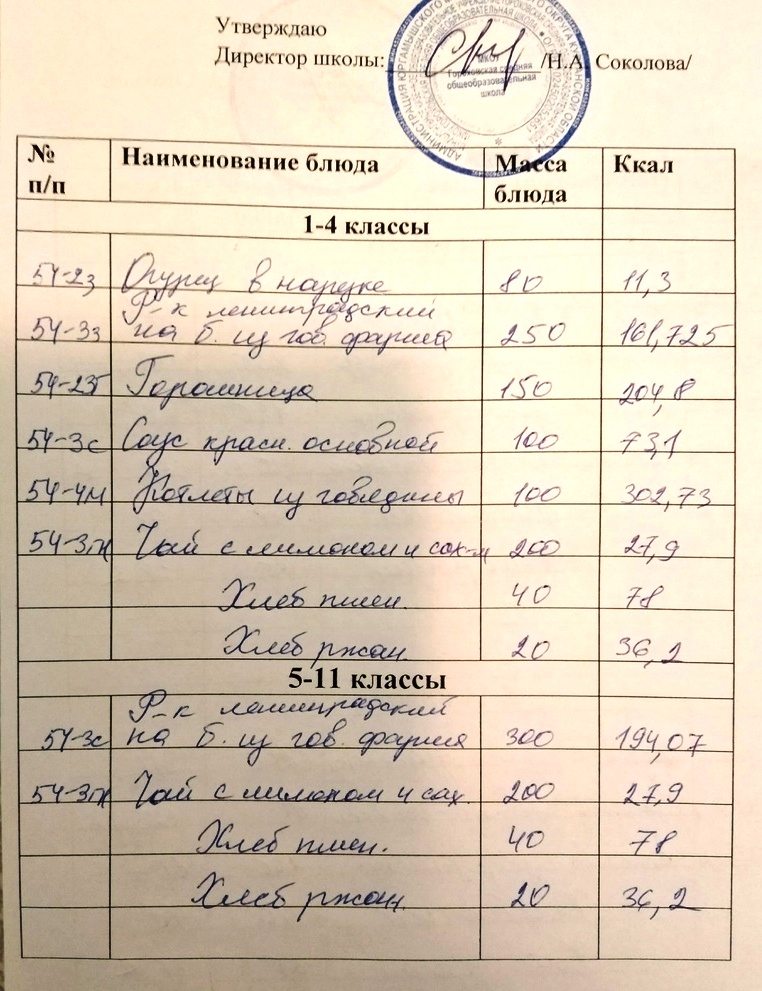 Утверждаю
Директор школы: /Н.А. Соколова/
МКОУ
Гороховская средняя
общеобразовательная
школа
№ п/п Наименование блюда Масса блюда Ккал
1-4 классы
54-2з Огурец в нарезке 80 11,3
Р-к ленинградский
54-3з на б. из гов. фарша 250 161,725
54-23г Горошница 150 204,8
54-3с Соус красн. основной 100 73,1
54-4м Котлеты из говядины 100 302,73
54-3гн Чай с лимоном и сах-м 200 27,9
Хлеб пшен. 40 78
Хлеб ржан. 20 36,2
5-11 классы
Р-к ленинградский
54-3с на б. из гов. фарша 300 194,07
54-3гн Чай с лимоном и сах. 200 27,9
Хлеб пшен. 40 78
Хлеб ржан. 20 36,2